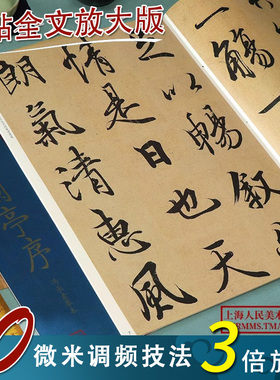 帖全文放大版
一觴一
足以暢敘
情是日也天
朗氣清惠風
亭序
上海人民美
RMMS.TMA
0微米调频技法 3倍